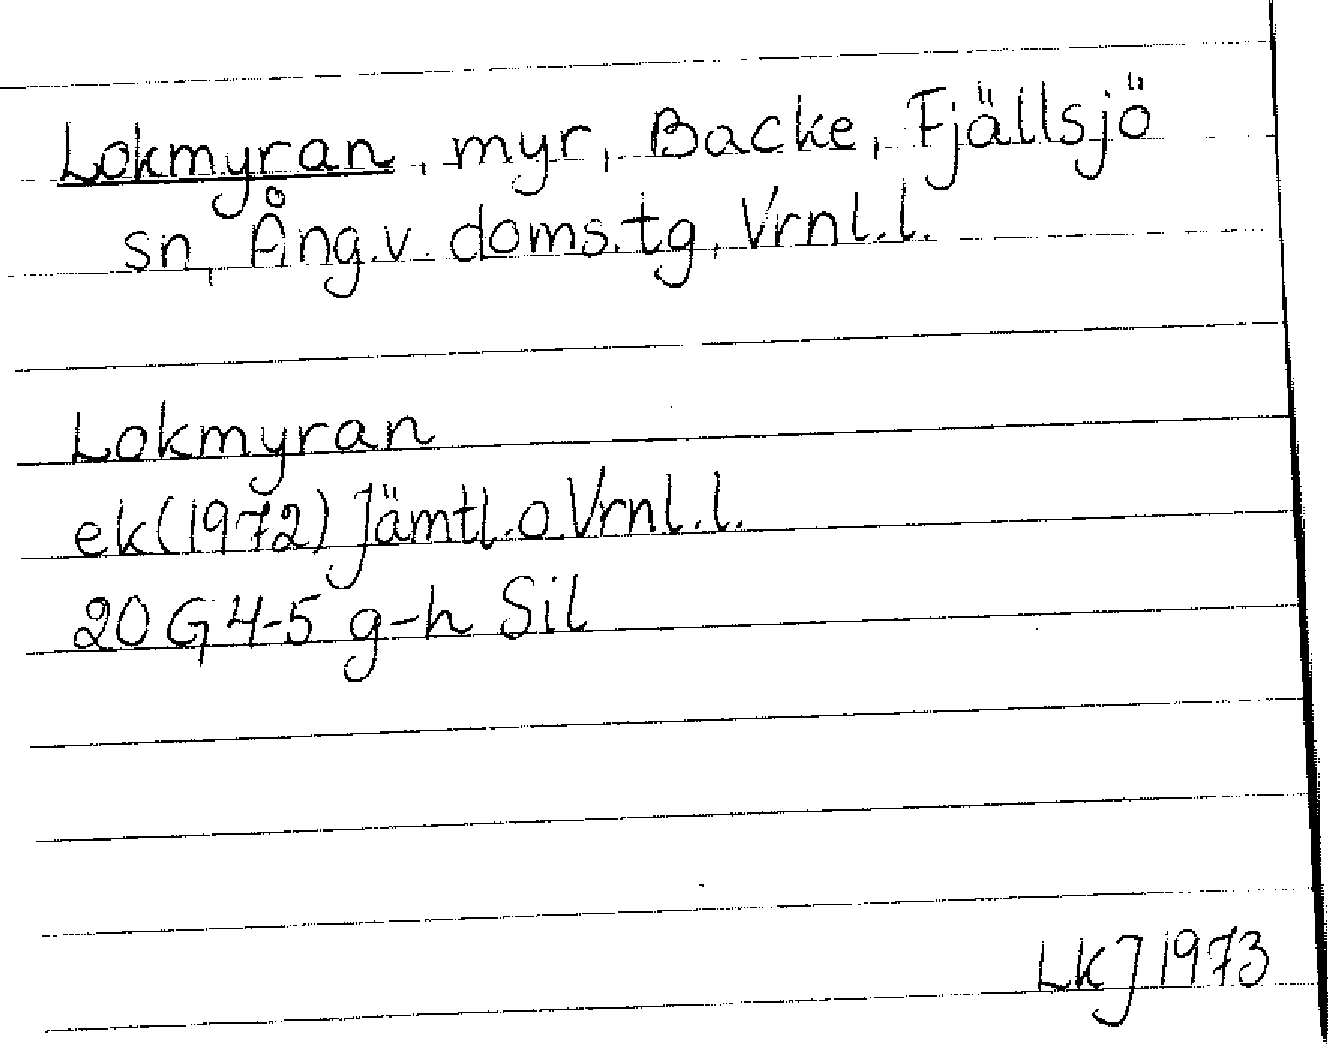 Lokmyran, myr, Backe, Fjällsjö
sn, Ång.v. doms.tg, Vrnl.l.
Lokmyran
ek(1972) Jämtl.o.Vrnl.l.
20G4-5 g-h Sil
LKJ 1973